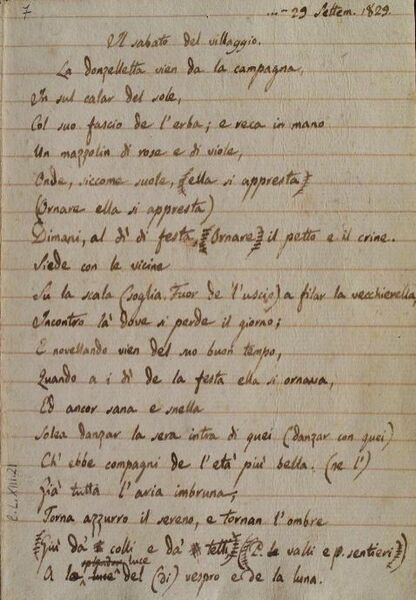 7
...– 29 Settem. 1829.
Il sabato del villaggio.
La donzelletta vien da la campagna,
In sul calar del sole,
Col suo fascio de l'erba; e reca in mano
Un mazzolin di rose e di viole,
Onde, siccome suole, (ella si appresta)
(Ornare ella si appresta)
Dimani, al dì di festa, (Ornare) il petto e il crine.
Siede con le vicine
Su la scala (soglia. Fuor de l'uscio) a filar la vecchierella,
Incontro là dove si perde il giorno;
E novellando vien del suo buon tempo,
Quando a i dì de la festa ella si ornava,
Ed ancor sana e snella
Solea danzar la sera intra di quei (danzar con quei)
Ch'ebbe compagni de l'età più bella. (ne l')
Già tutta l'aria imbruna,
Torna azzurro il sereno, e tornan l'ombre
(Giù da colli e da tetti) (P. le valli e p. sentieri)
luce
A la luce del (di) vespro e de la luna.
C.L.XIII.21